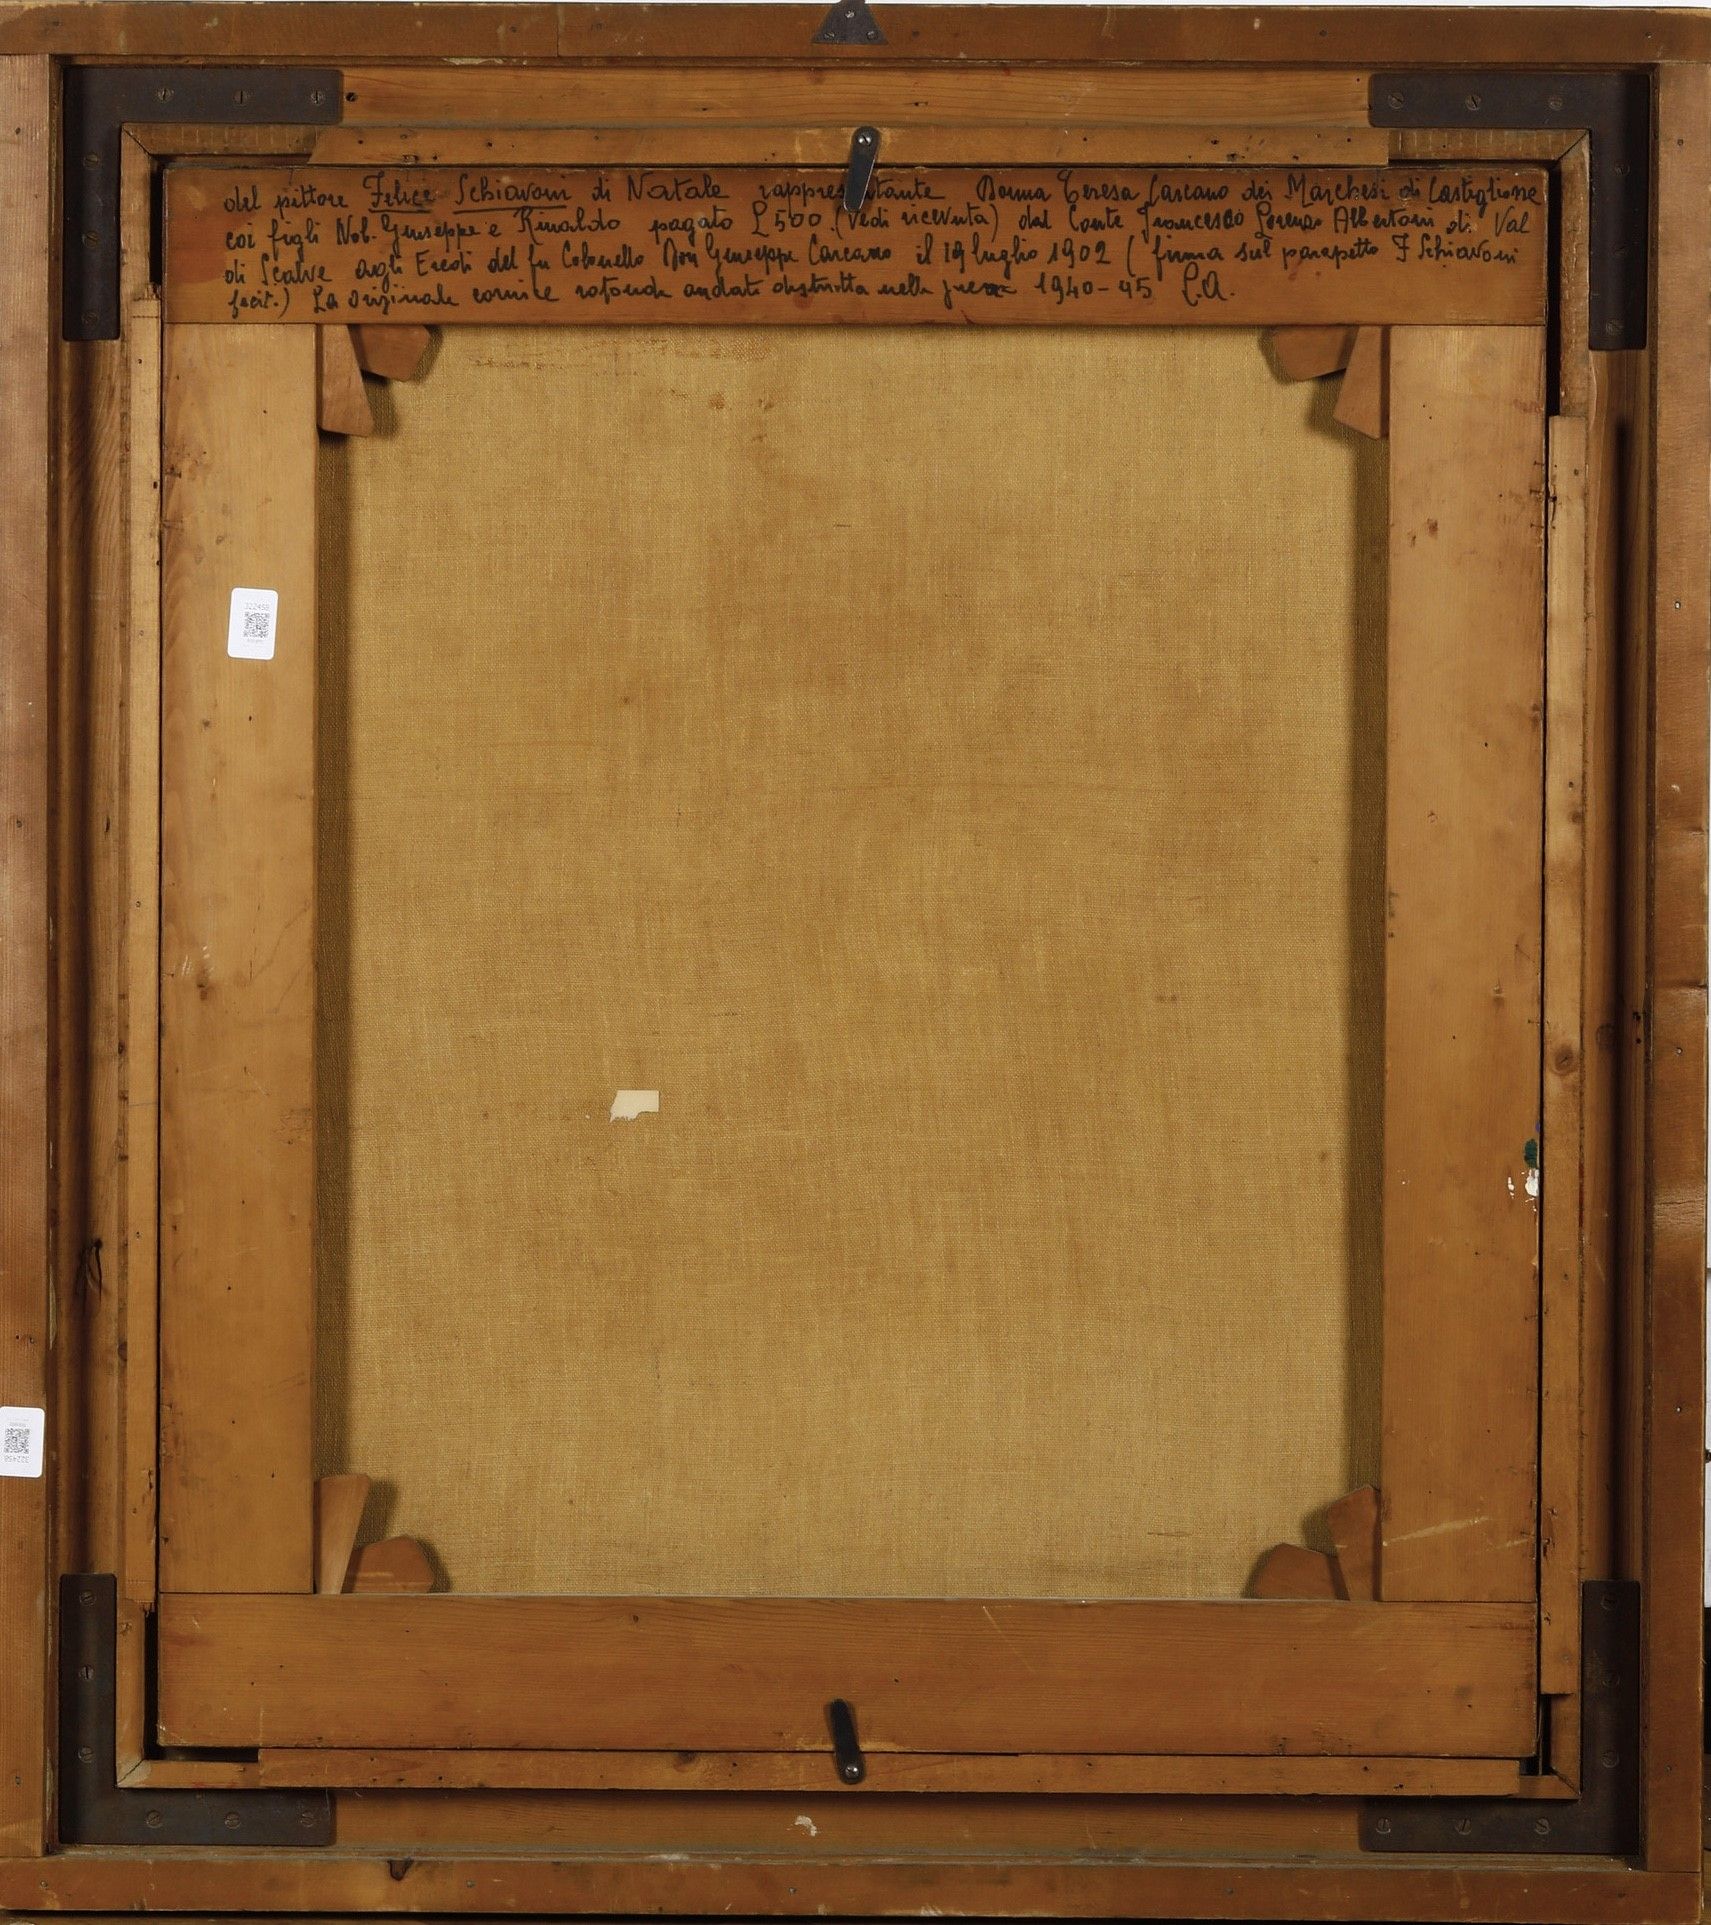 del pittore Felice Schiavoni di Natale rappresentante Donna Teresa Carcano dei Marchesi di Castiglione
coi figli Nob. Giuseppe e Rinaldo pagato £ 500 (vedi ricevuta) dal Conte Francesco Lorenzo Albertoni di Val
di Scalve agli Eredi del fu Colonello Don Giuseppe Carcano il 19 luglio 1902 ( firma sul parapetto F Schiavoni
fecit.) La originale cornice rotonda andata distrutta nella guerra 1940-45 C.A.
322458
322458